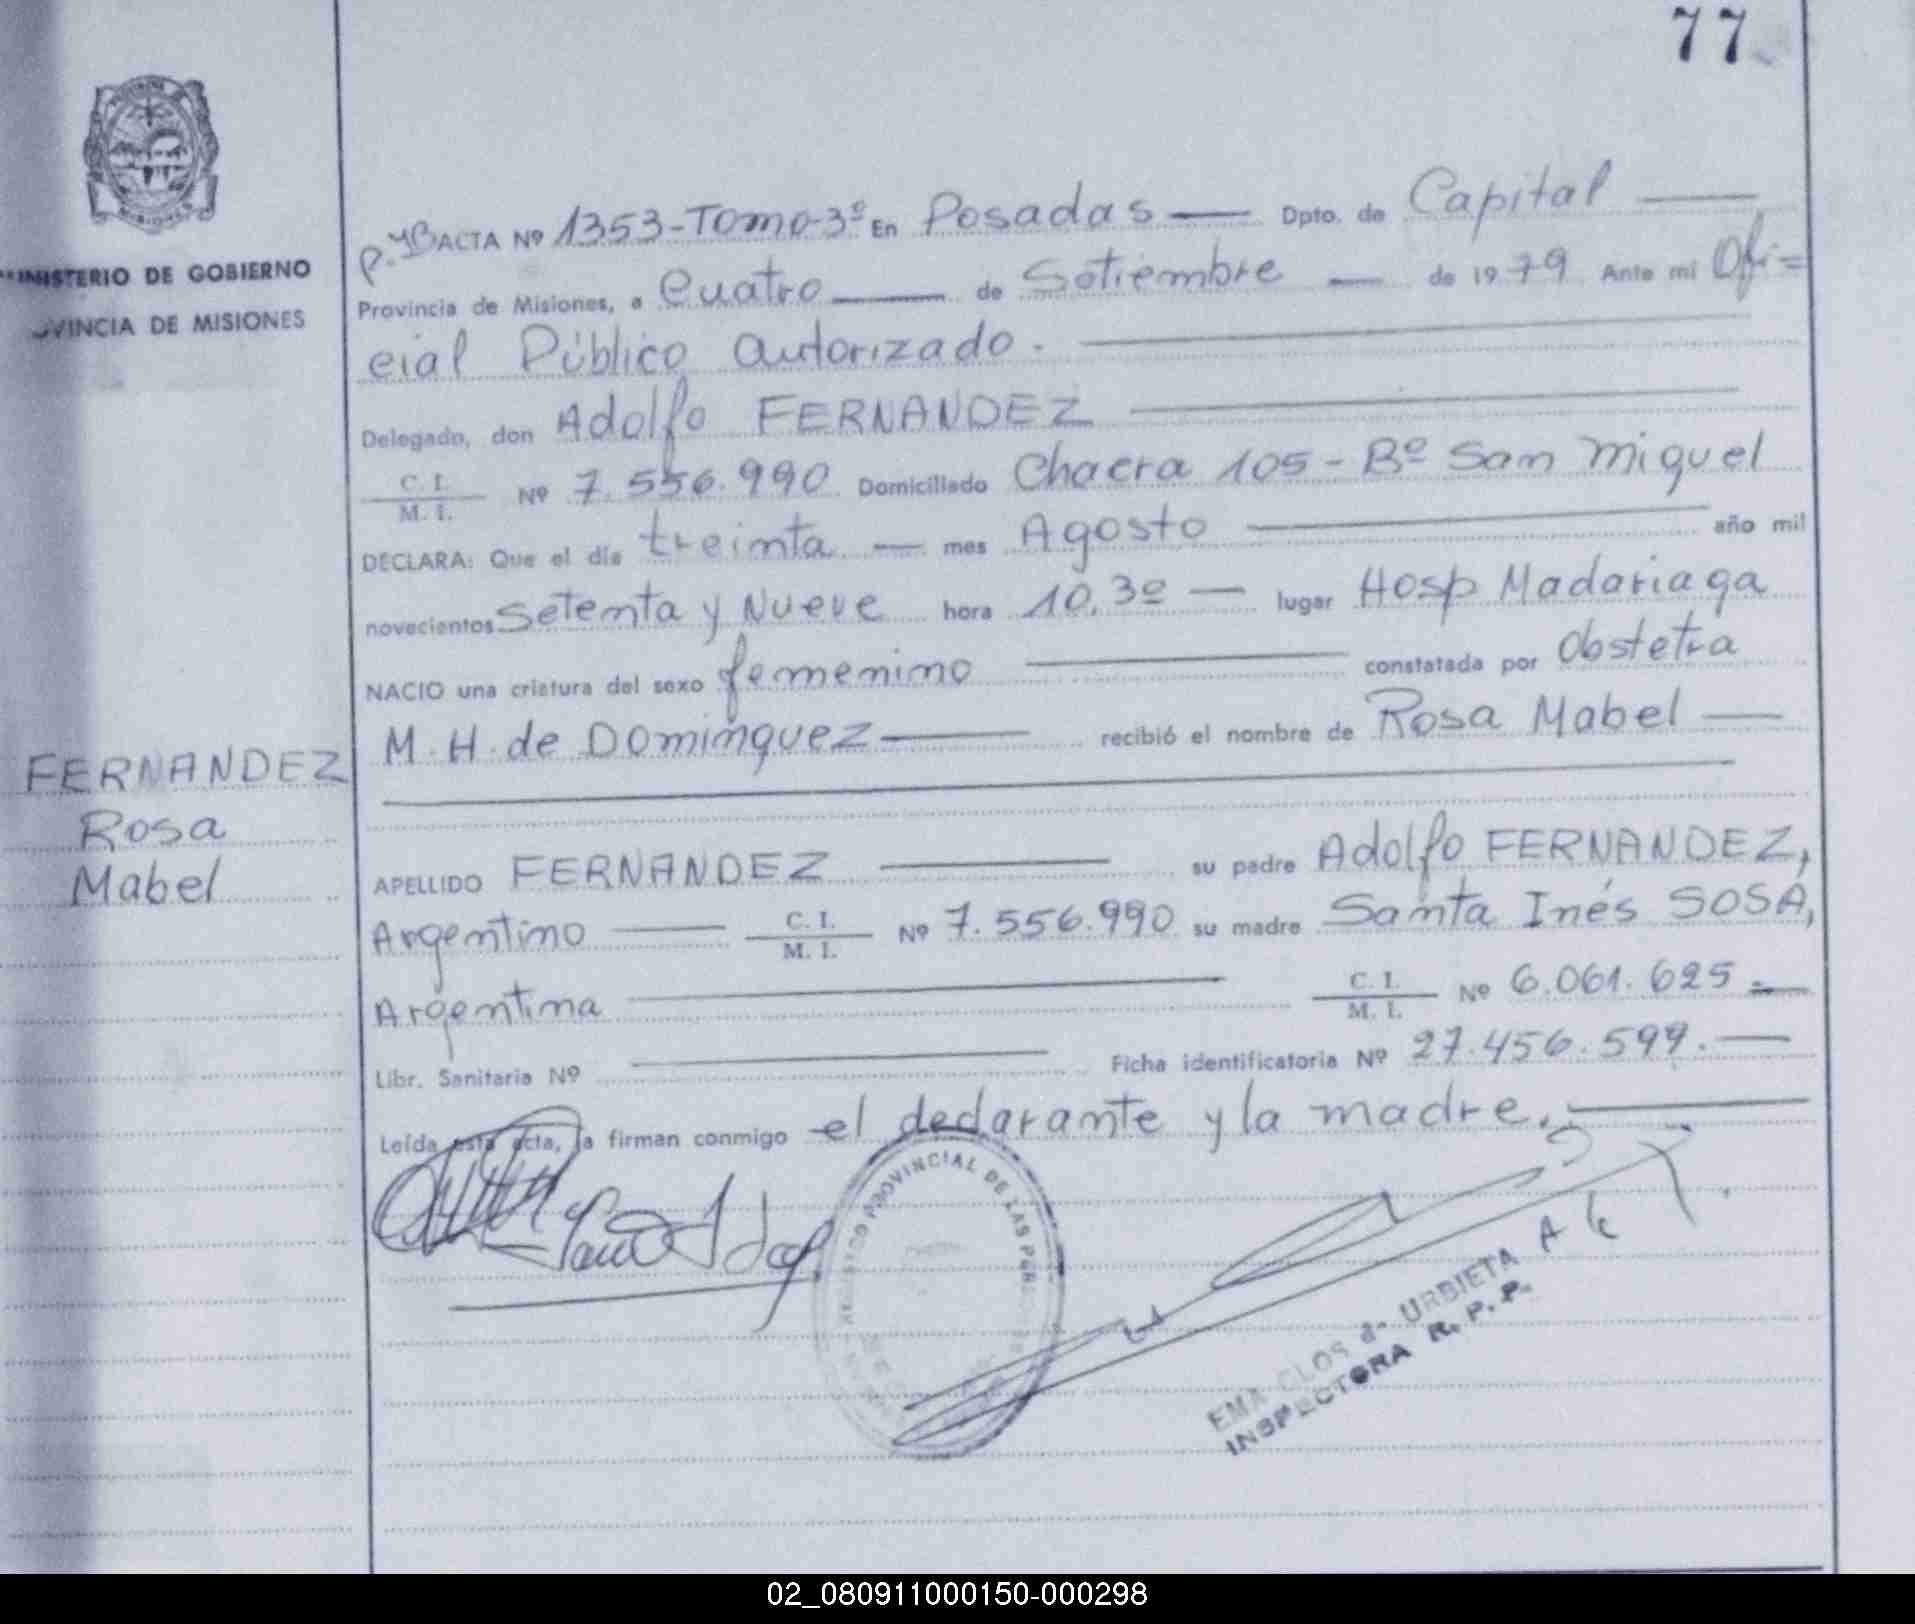 77
MINISTERIO DE GOBIERNO
PROVINCIA DE MISIONES
ACTA Nº 1353-Tomo-3º En Posadas — Dpto. de Capital —
Provincia de Misiones, a Cuatro — de Setiembre — de 1979 Ante mi Ofi=
cial Público autorizado.
Delegado, don Adolfo FERNANDEZ
C. I.
M. I. Nº 7.556.990 Domiciliado Chacra 105 - Bº San Miguel
DECLARA: Que el día treinta — mes Agosto — año mil
novecientos Setenta y Nueve hora 10,3º — lugar Hosp Madariaga
NACIO una criatura del sexo femenino — constatada por Obstetra
M. H. de Dominguez — recibió el nombre de Rosa Mabel —
FERNANDEZ
Rosa
Mabel
APELLIDO FERNANDEZ — su padre Adolfo FERNANDEZ,
Argentino — C. I.
M. I. Nº 7.556.990 su madre Santa Inés SOSA,
Argentina — C. I.
M. I. Nº 6.061.625 —
Libr. Sanitaria Nº — Ficha identificatoria Nº 27.456.599. —
Leída esta acta, la firman conmigo el declarante y la madre. —
REGISTRO PROVINCIAL DE LAS PERSONAS
EMA CLOS de URBIETA
INSPECTORA R. P. P.
02_080911000150-000298